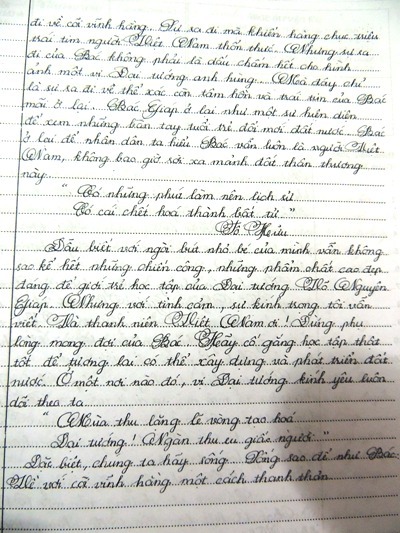 đi về cõi vĩnh hằng. Sự ra đi mà khiến hàng chục triệu
trái tim người Việt Nam thổn thức. Nhưng sự ra
đi của Bác không phải là dấu chấm hết cho hình
ảnh một vị Đại tướng anh hùng. Mà đây chỉ
là sự ra đi về thể xác còn tâm hồn và trái tim của Bác
mãi ở lại. Bác Giáp ở lại như một sự hiện diện
để xem những bàn tay tuổi trẻ đổi mới đất nước. Bác
ở lại để nhân dân ta hiểu Bác vẫn luôn là người Việt
Nam, không bao giờ rời xa mảnh đất thân thương
này.
" Có những phút làm nên lịch sử
Có cái chết hoá thành bất tử "
Tố Hữu
Dẫu biết với ngòi bút nhỏ bé của mình vẫn không
sao kể hết những chiến công, những phẩm chất cao đẹp
đáng để giới trẻ học tập của Đại tướng Võ Nguyên
Giáp. Nhưng với tình cảm, sự kính trọng tôi vẫn
viết. Là thanh niên Việt Nam ơi! Đừng phụ
lòng mong đợi của Bác. Hãy cố gắng học tập thật
tốt để tương lai có thể xây dựng và phát triển đất
nước. Ở một nơi nào đó, vị Đại tướng kính yêu luôn
dõi theo ta.
" Mùa thu lặng lẽ vòng tạo hoá
Đại tướng! Ngàn thu ru giấc người "
Đặc biệt, chúng ta hãy sống. Sống sao để như Bác
Về với cõi vĩnh hằng một cách thanh thản